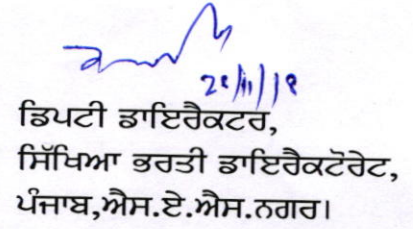 ਡਿਪਟੀ ਡਾਇਰੈਕਟਰ,
ਸਿੱਖਿਆ ਭਰਤੀ ਡਾਇਰੈਕਟੋਰੇਟ,
ਪੰਜਾਬ,ਐਸ.ਏ.ਐਸ.ਨਗਰ।